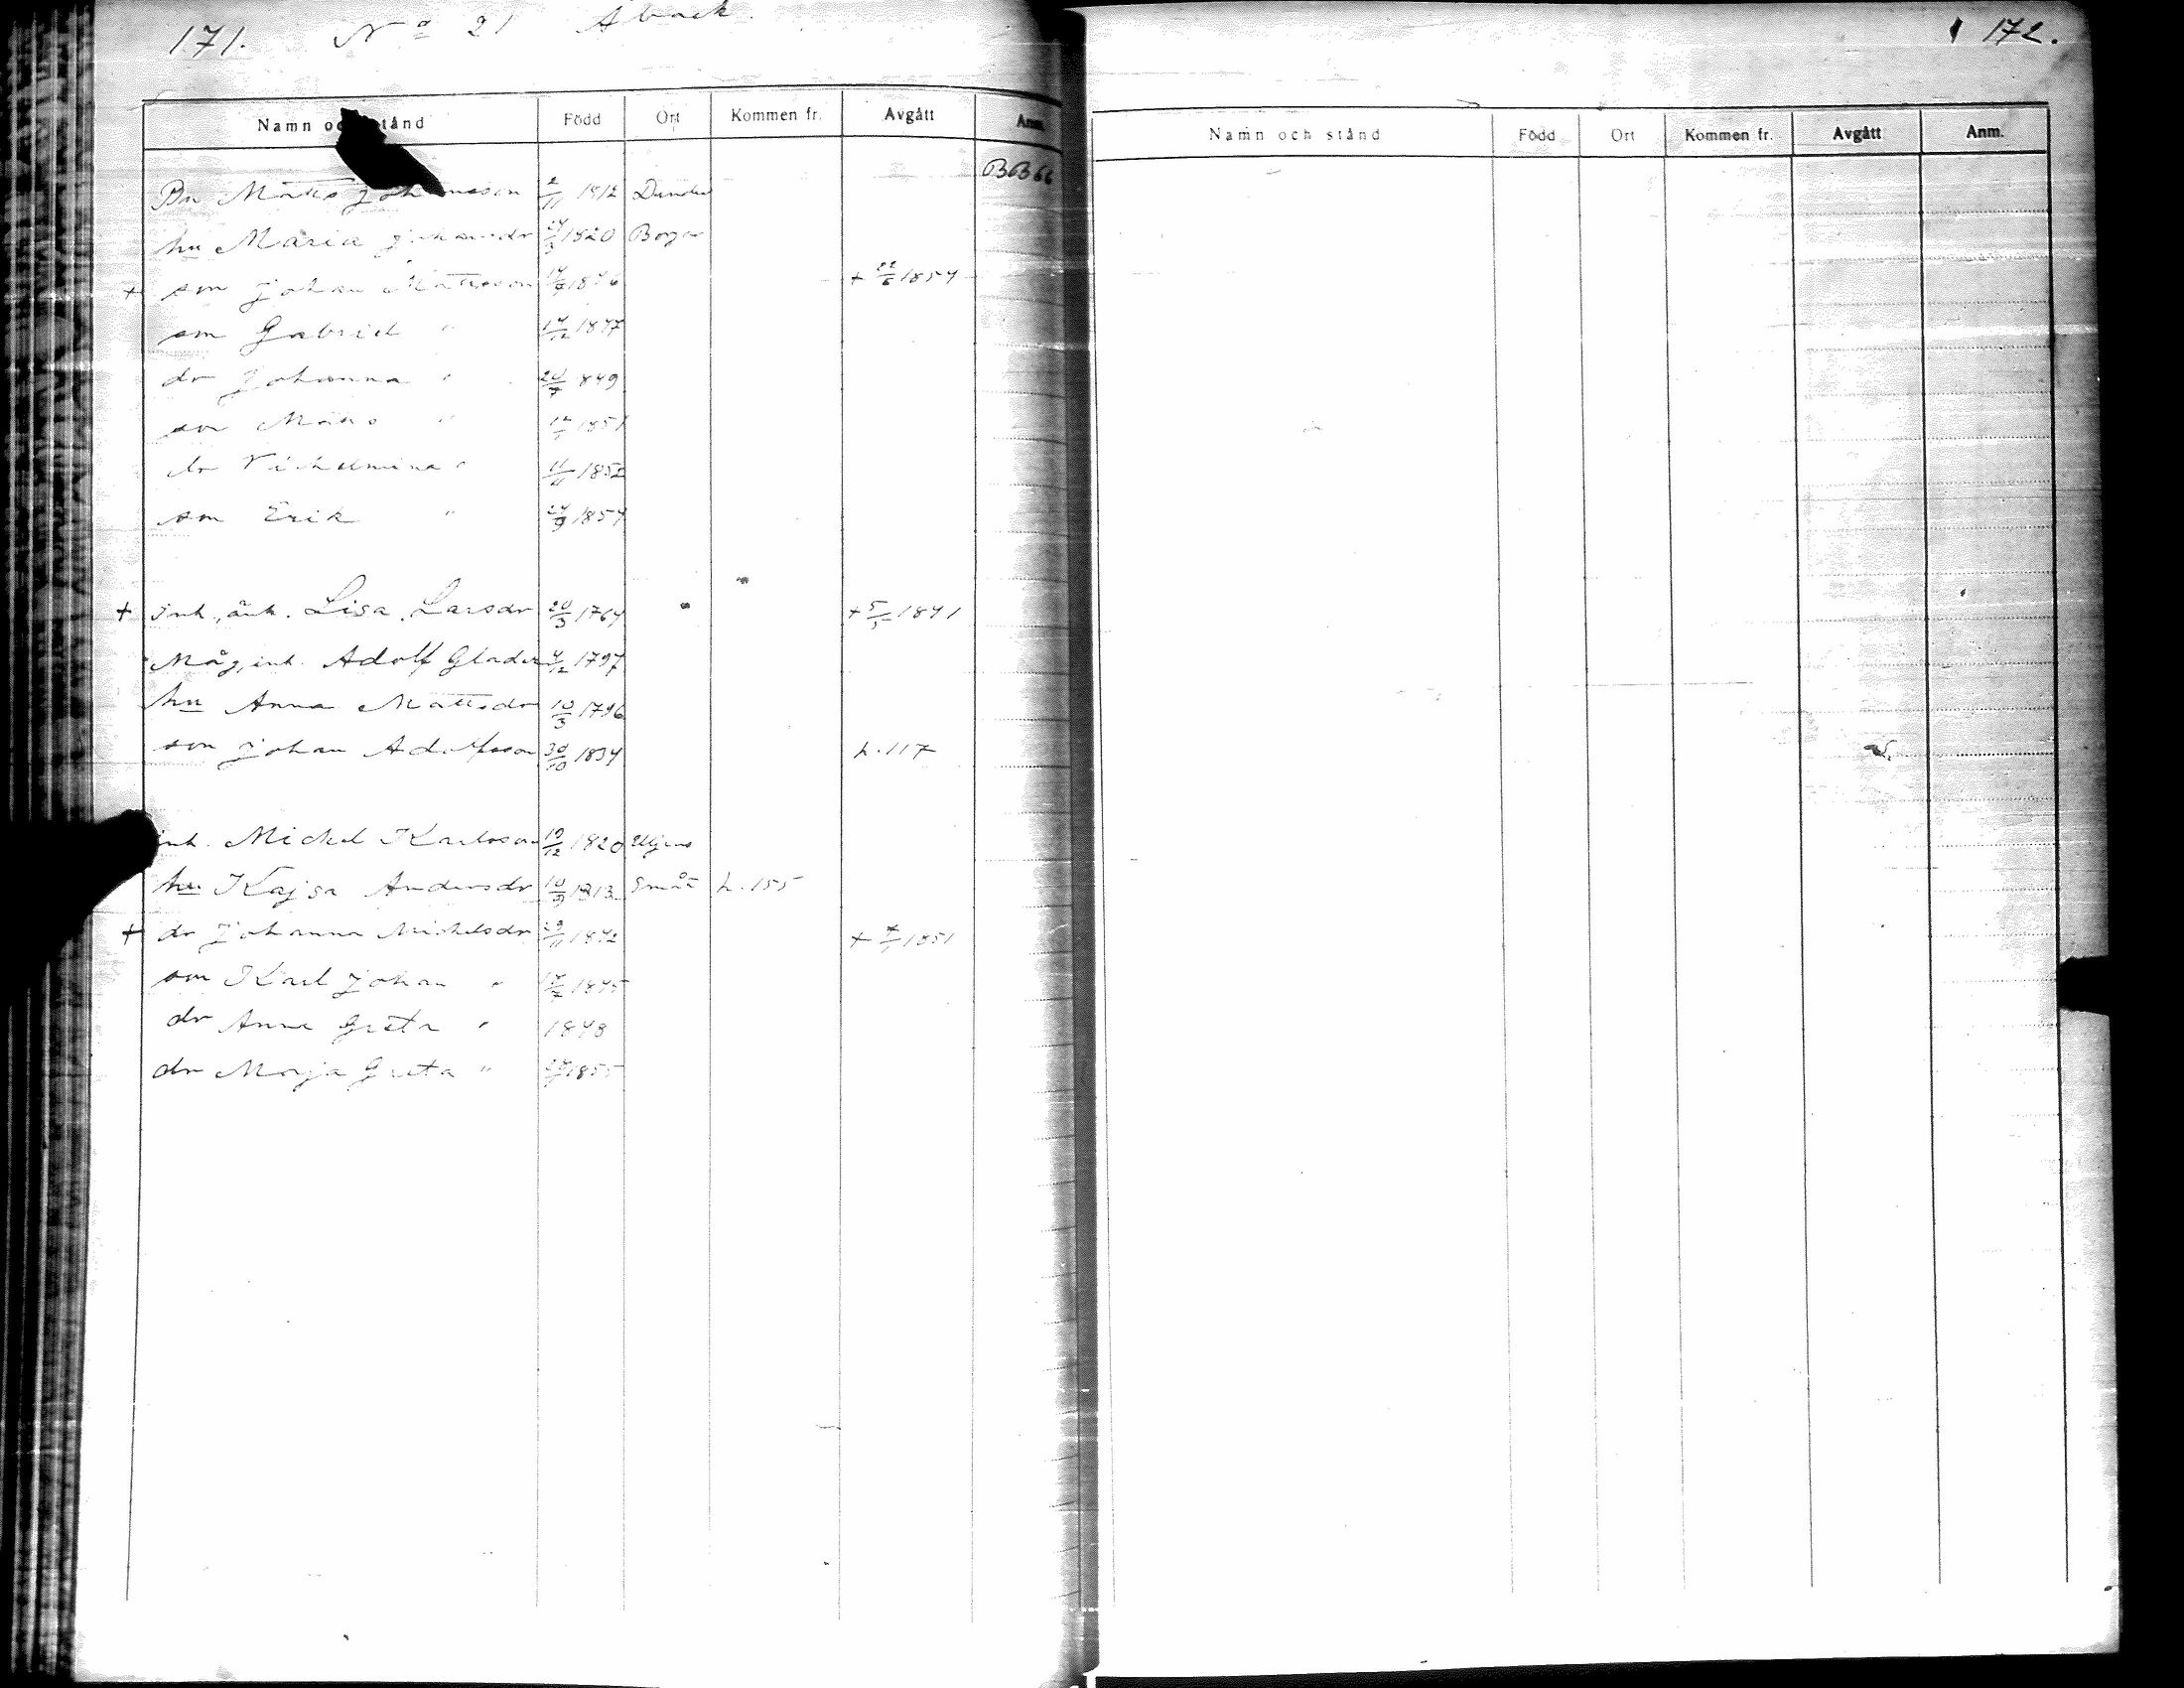 171. No 21 Åback.
Namn och stånd Född Ort Kommen fr. Avgått Anm.
BB 66
Bn Matts Johansson 2/11 1812
hu Maria Johansdr 24/3 1820 Borgar
+ son Johan Mattsson 1846 + 22/6 1854
son Gabriel " 14/12 1847
dr Johanna " 20/7 1849
son Matts " 1851
dr Vilhelmina " 11/11 1852
son Erik " 24/9 1854
+ inh. änk. Lisa Larsdr 20/3 1764 + 5/5 1841
Måg, inh. Adolf Glader 4/12 1797
hu Anna Mattsdr 10/3 1796
son Johan Adolfsson 30/10 1834 h. 117
inh. Mickel Karlsson 19/12 1820
hu Kajsa Andersdr 10/9 1813 Småt h. 155
+ dr Johanna Mickelsdr 29/11 1842 + 1851
son Karl Johan " 1845
dr Anna Greta " 1848
dr Maja Greta " 1855
172.
Namn och stånd Född Ort Kommen fr. Avgått Anm.